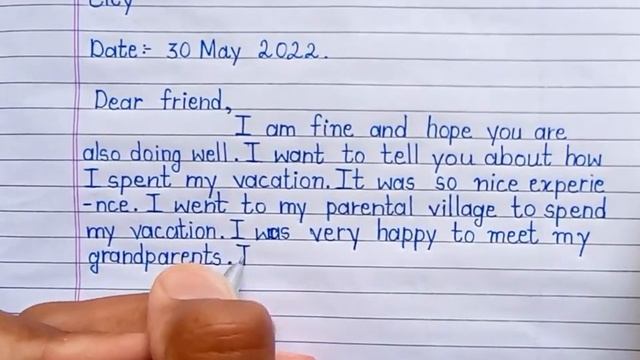 City
Date:- 30 May 2022.
Dear friend,
I am fine and hope you are
also doing well. I want to tell you about how
I spent my vacation. It was so nice experie
-nce. I went to my parental village to spend
my vacation. I was very happy to meet my
grandparents. I